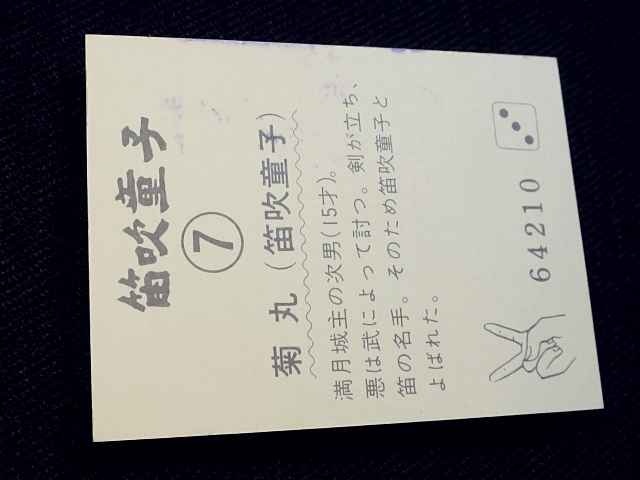 笛吹童子
7
菊丸(笛吹童子)
満月城主の次男(15才)。
悪は武によって討つ。剣が立ち、
笛の名手。そのため笛吹童子と
よばれた。
64210